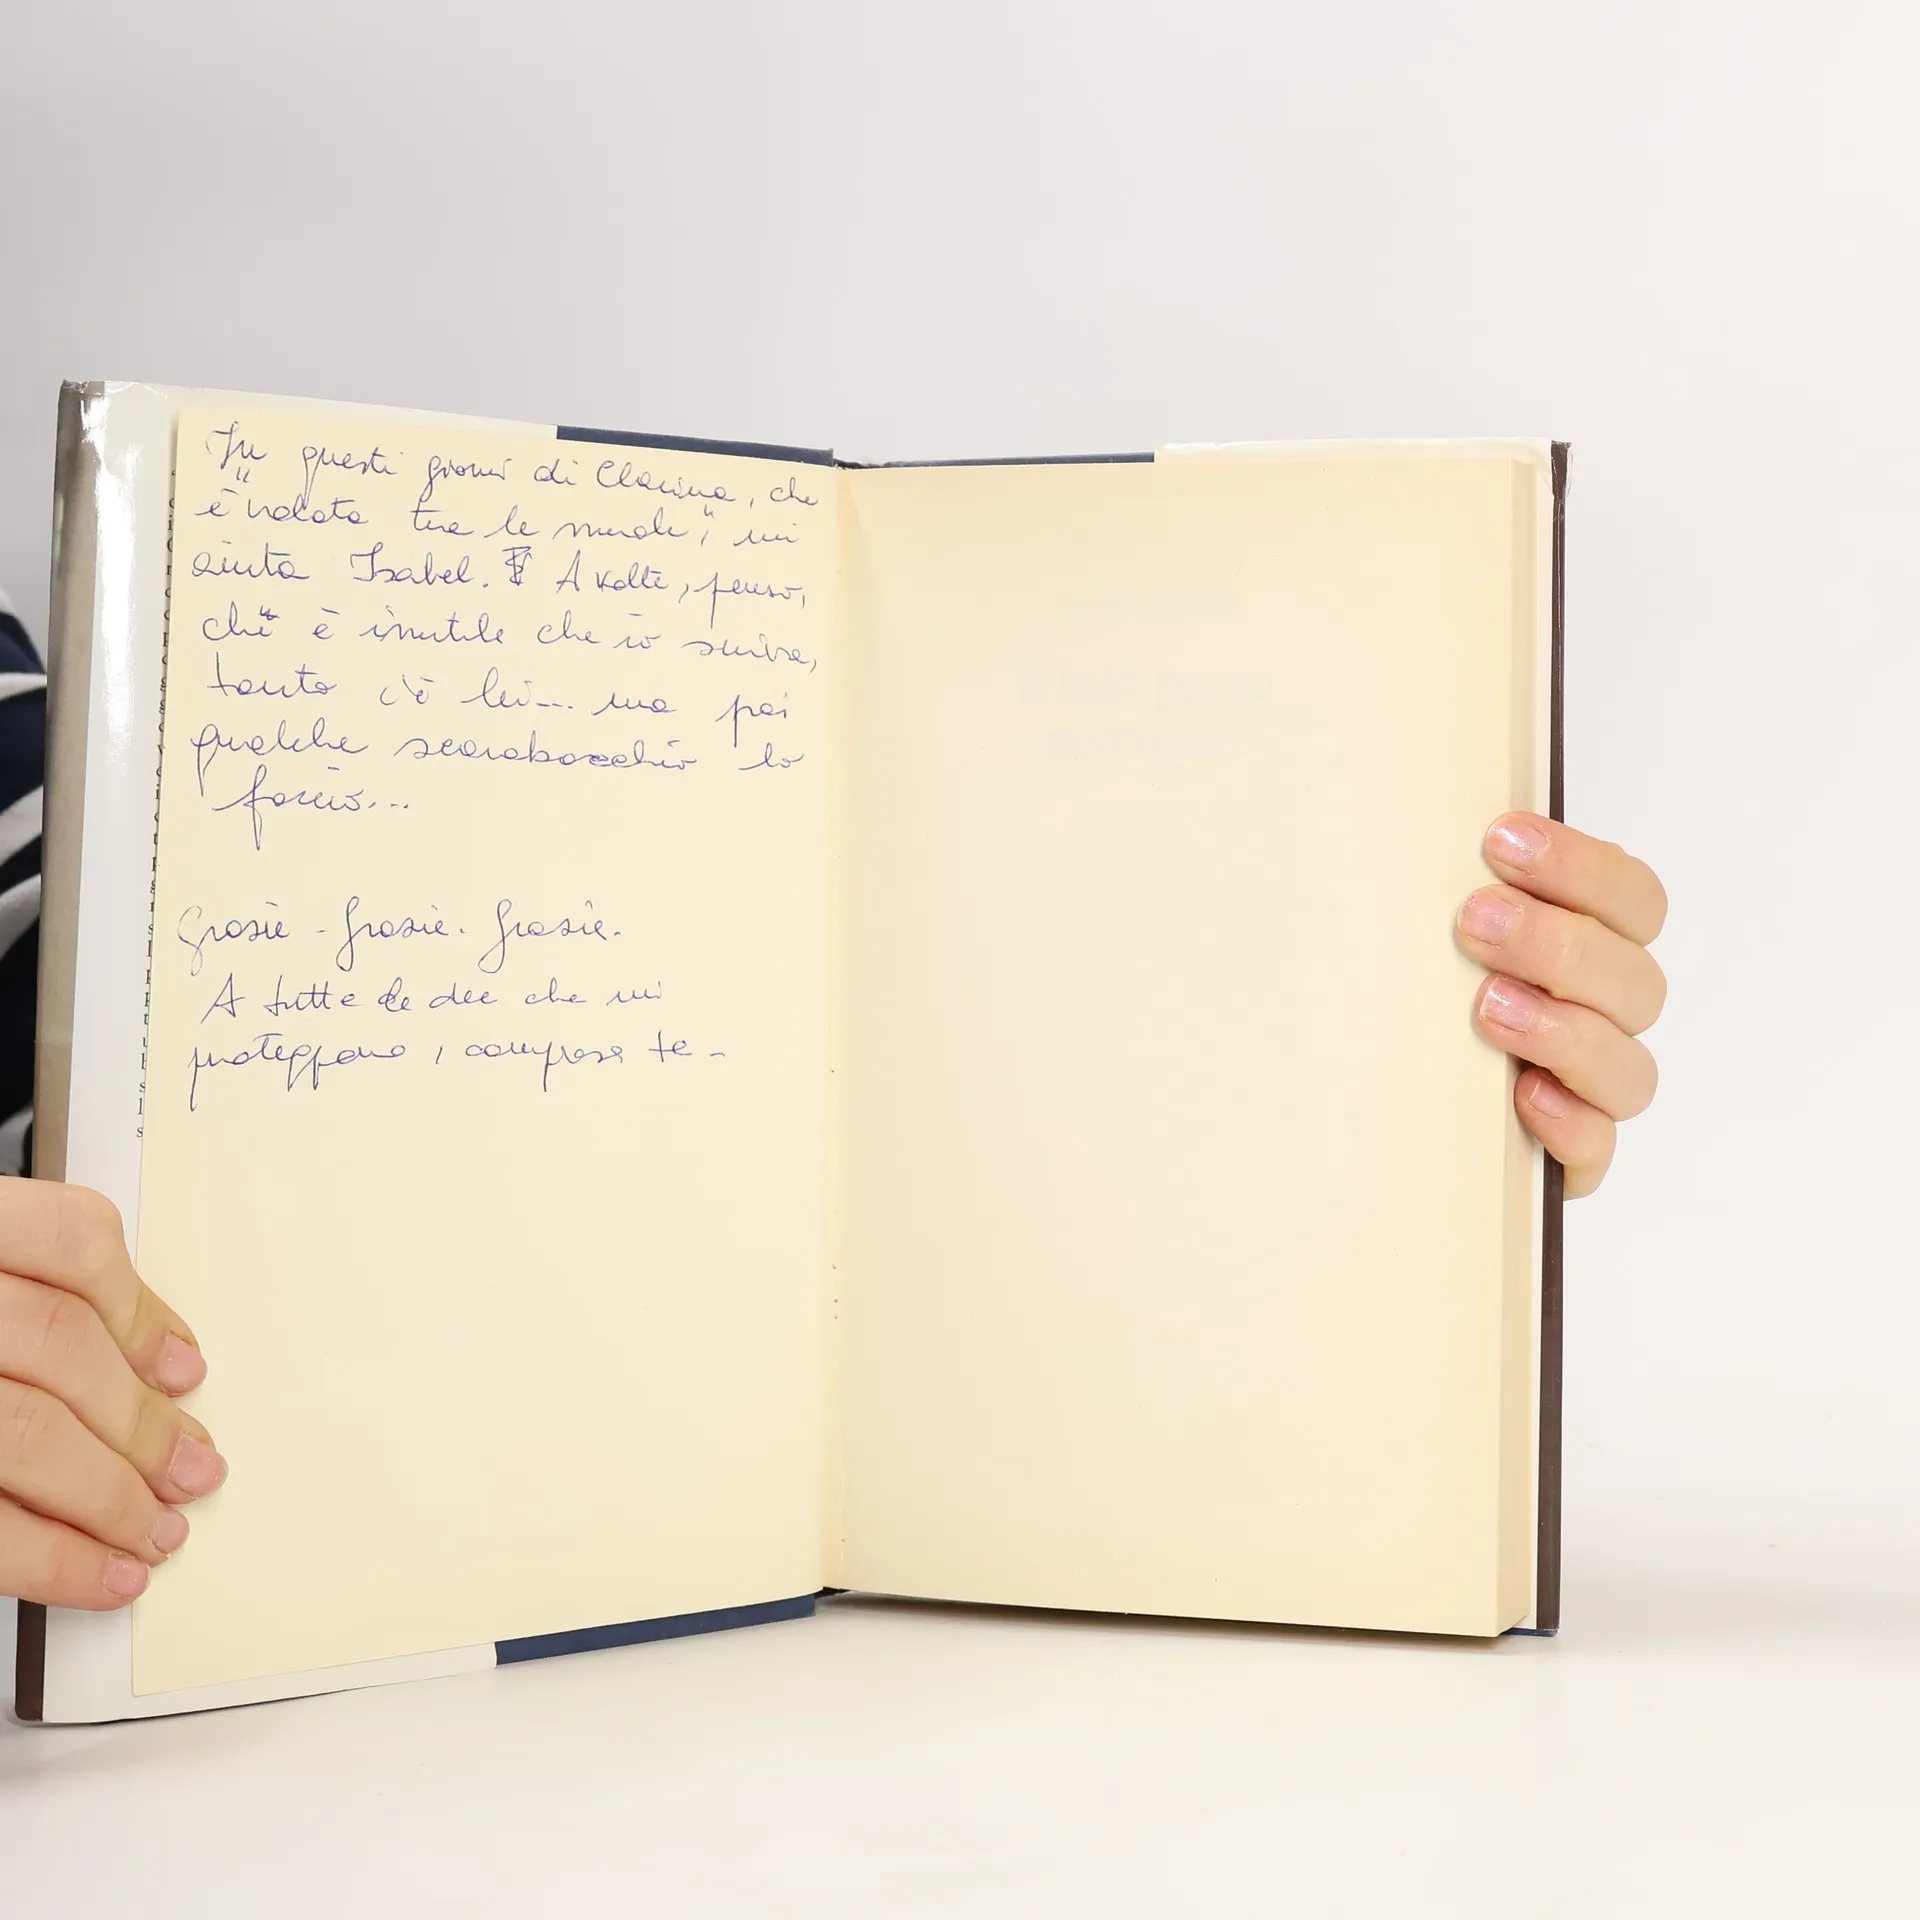 In questi giorni di Clarina, che
è "volata tra le nuvole", mi
aiuta Isabel. A volte, penso,
che è inutile che io scriva,
tanto c'è lei... ma poi
qualche scarabocchio lo
faccio...
Grazie - Grazie. Grazie.
A tutte le dee che mi
proteggono, compresa te -